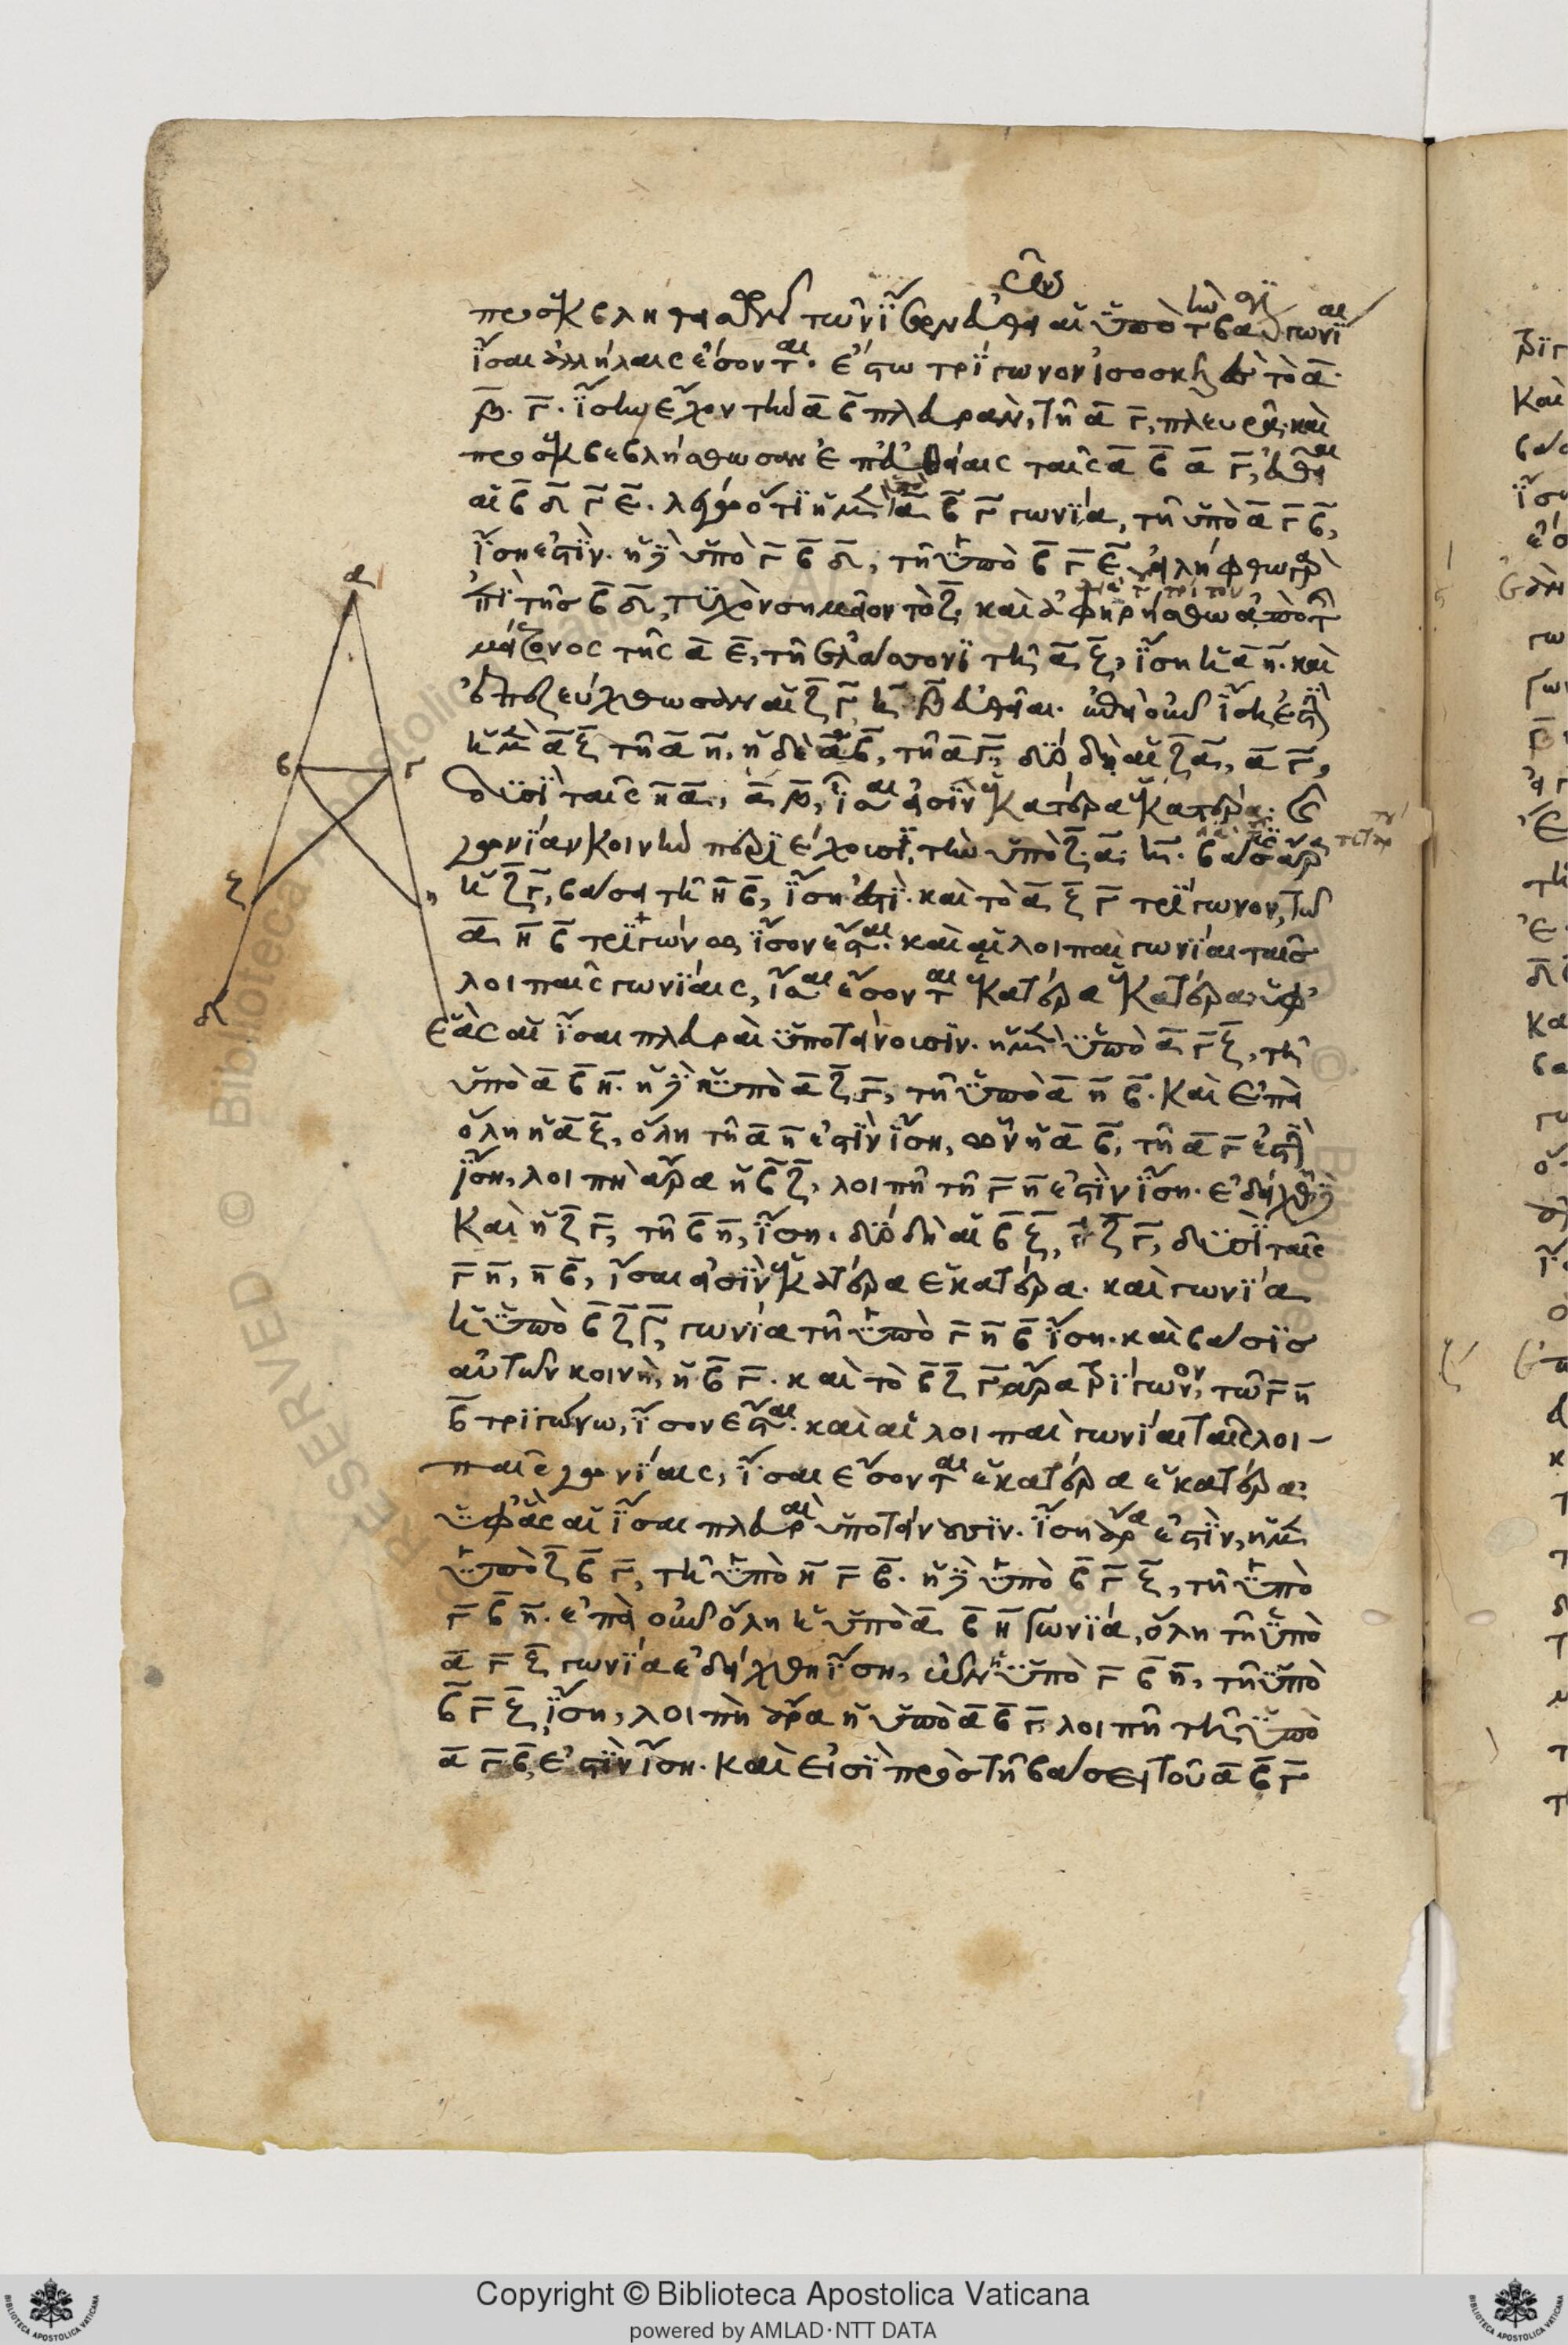 προσεκβληθεισῶν τῶν ἴσων εὐθειῶν αἱ ὑπὸ τὴν βάσιν γωνίαι
ἴσαι ἀλλήλαις ἔσονται. ἔστω τρίγωνον ἰσοσκελὲς τὸ α
β γ. ἴσην ἔχον τὴν α β πλευρὰν, τῆ α γ, πλευρᾶ. καὶ
προσεκβεβλήσθωσαν ἐπ' εὐθείαις ταῖς α β α γ, εὐθεῖαι
αἱ β δ γ ε. λέγω ὅτι ἡ μὲν ὑπὸ α β γ γωνία, τῆ ὑπὸ α γ β,
ἴση ἐστίν. ἡ δὲ ὑπὸ γ β δ, τῆ ὑπὸ β γ ε. εἰλήφθω γὰρ
ἐπὶ τῆς β δ, τυχὸν σημεῖον τὸ ζ. καὶ ἀφηρήσθω ἀπὸ τῆς
μείζονος τῆς α ε, τῆ ἐλάσσονι τῆ α ζ, ἴση ἡ α η. καὶ
ἐπεζεύχθωσαν αἱ ζ γ η β εὐθεῖαι. ἐπεὶ οὖν ἴση ἐστὶν
ἡ μὲν α ζ τῆ α η, ἡ δὲ α β, τῆ α γ, δύο δὴ αἱ ζ α, α γ,
δυσὶ ταῖς η α, α β, ἴσαι εἰσὶν ἑκατέρα ἑκατέρα. καὶ
γωνίαν κοινὴν περιέχουσι, τὴν ὑπὸ ζ α η. βάσις ἄρα
ἡ ζ γ, βάσει τῆ η β, ἴση ἐστὶ. καὶ τὸ α ζ γ τρίγωνον, τῶ
α η β τριγώνω, ἴσον ἔσται. καὶ αἱ λοιπαὶ γωνίαι ταῖς
λοιπαῖς γωνίαις, ἴσαι ἔσονται ἑκατέρα ἑκατέρα, ὑφ'
ἃς αἱ ἴσαι πλευραὶ ὑποτείνουσιν. ἡ μὲν ὑπὸ α γ ζ, τῆ
ὑπὸ α β η. ἡ δὲ ὑπὸ α ζ γ, τῆ ὑπὸ α η β. καὶ ἐπεὶ
ὅλη ἡ α ζ, ὅλη τῆ α η ἐστὶν ἴση, ὧν ἡ α β, τῆ α γ ἐστὶν
ἴση, λοιπὴ ἄρα ἡ β ζ, λοιπῆ τῆ γ η ἐστὶν ἴση. ἐδείχθη δὲ
καὶ ἡ ζ γ, τῆ β η, ἴση. δύο δὴ αἱ β ζ, ζ γ, δυσὶ ταῖς
γ η, η β, ἴσαι εἰσὶν ἑκατέρα ἑκατέρα. καὶ γωνία
ἡ ὑπὸ β ζ γ, γωνία τῆ ὑπὸ γ η β ἴση. καὶ βάσις
αὐτῶν κοινὴ, ἡ β γ. καὶ τὸ β ζ γ ἄρα τρίγωνον, τῶ γ η
β τριγώνω, ἴσον ἔσται. καὶ αἱ λοιπαὶ γωνίαι ταῖς λοι-
παῖς γωνίαις, ἴσαι ἔσονται ἑκατέρα ἑκατέρα,
ὑφ' ἃς αἱ ἴσαι πλευραὶ ὑποτείνουσιν. ἴση ἄρα ἐστὶν, ἡ μὲν
ὑπὸ ζ β γ, τῆ ὑπὸ η γ β. ἡ δὲ ὑπὸ β γ ζ, τῆ ὑπὸ
γ β η. ἐπεὶ οὖν ὅλη ἡ ὑπὸ α β η γωνία, ὅλη τῆ ὑπὸ
α γ ζ γωνία ἐδείχθη ἴση, ὧν ἡ ὑπὸ γ β η, τῆ ὑπὸ
β γ ζ ἴση, λοιπὴ ἄρα ἡ ὑπὸ α β γ, λοιπῆ τῆ ὑπὸ
α γ β, ἐστὶν ἴση. καὶ εἰσὶ πρὸς τῆ βάσει τοῦ α β γ
α
β γ
ζ η
δ ε
Copyright © Biblioteca Apostolica Vaticana
powered by AMLAD·NTT DATA